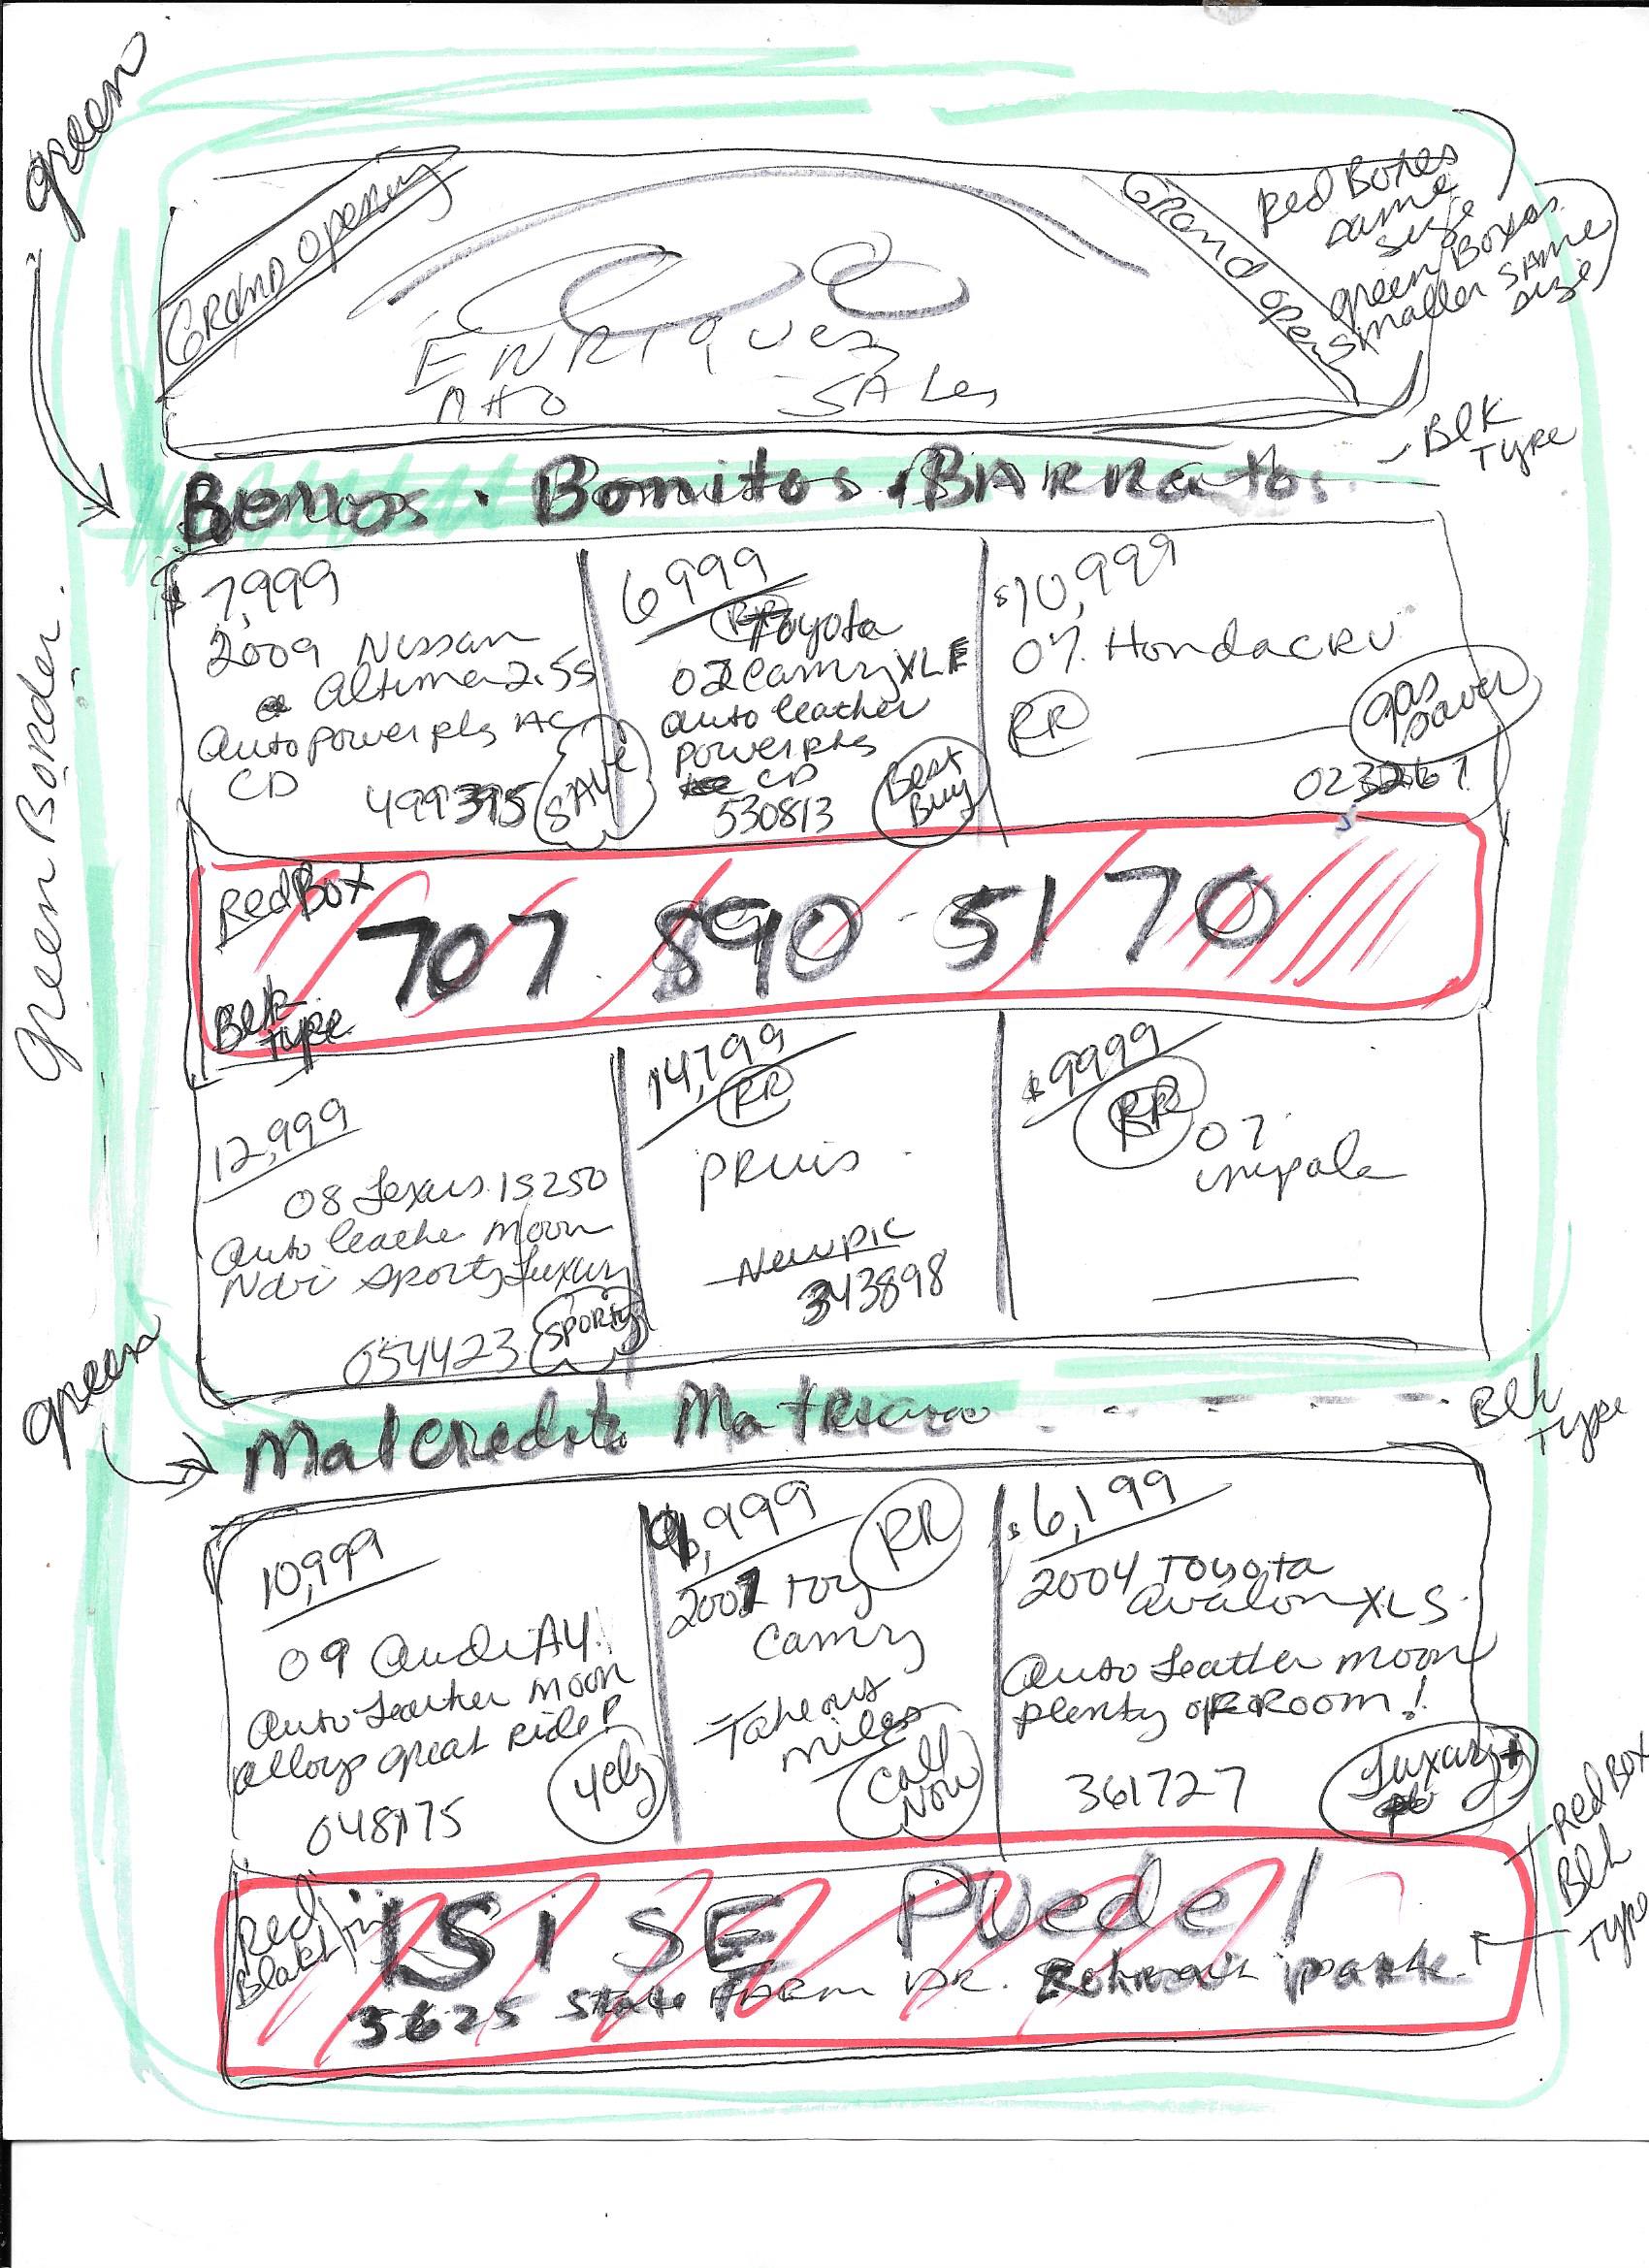 green
Grand Opening
Grand Opening
Red Boxes
same
size
green Boxes
smaller same
size
ENRIQUEZ
Auto SALes
Blk
Type
Green Border.
Bonitos . BARRatos.
$7,999
2009 Nissan
Altima 2.5s
Auto power pkg AC
CD
499395
SAVE
6999
RR
Toyota
Camry XLE
auto leather
power pkg
CD
530813
Best
Buy
$10,999
07. Honda CRV
RR
gas
saver
Red Box
707. 890-5170
Blk
type
12,999
08 Lexus IS250
Auto leather moon
Navi Sporty Luxury
054423
SPORty
14,799
RR
PRius
New pic
343898
$9999
RR
07
impala
green
Malcredito Matricua
Blk
Type
10,999
09 Audi A4
Auto Leather moon
alloys great Ride!
048175
4cly
,999
RR
2007 Toy
Camry
Take out
miles
Call
Now
$6,199
2004 TOYOta
avalon XLS
Auto Leather moon
plenty of ROOM!
361727
Luxury+
Red Box
Blk
Type
Red
¡SI SE Puede!
5625 State FARM DR. Rohnert park.